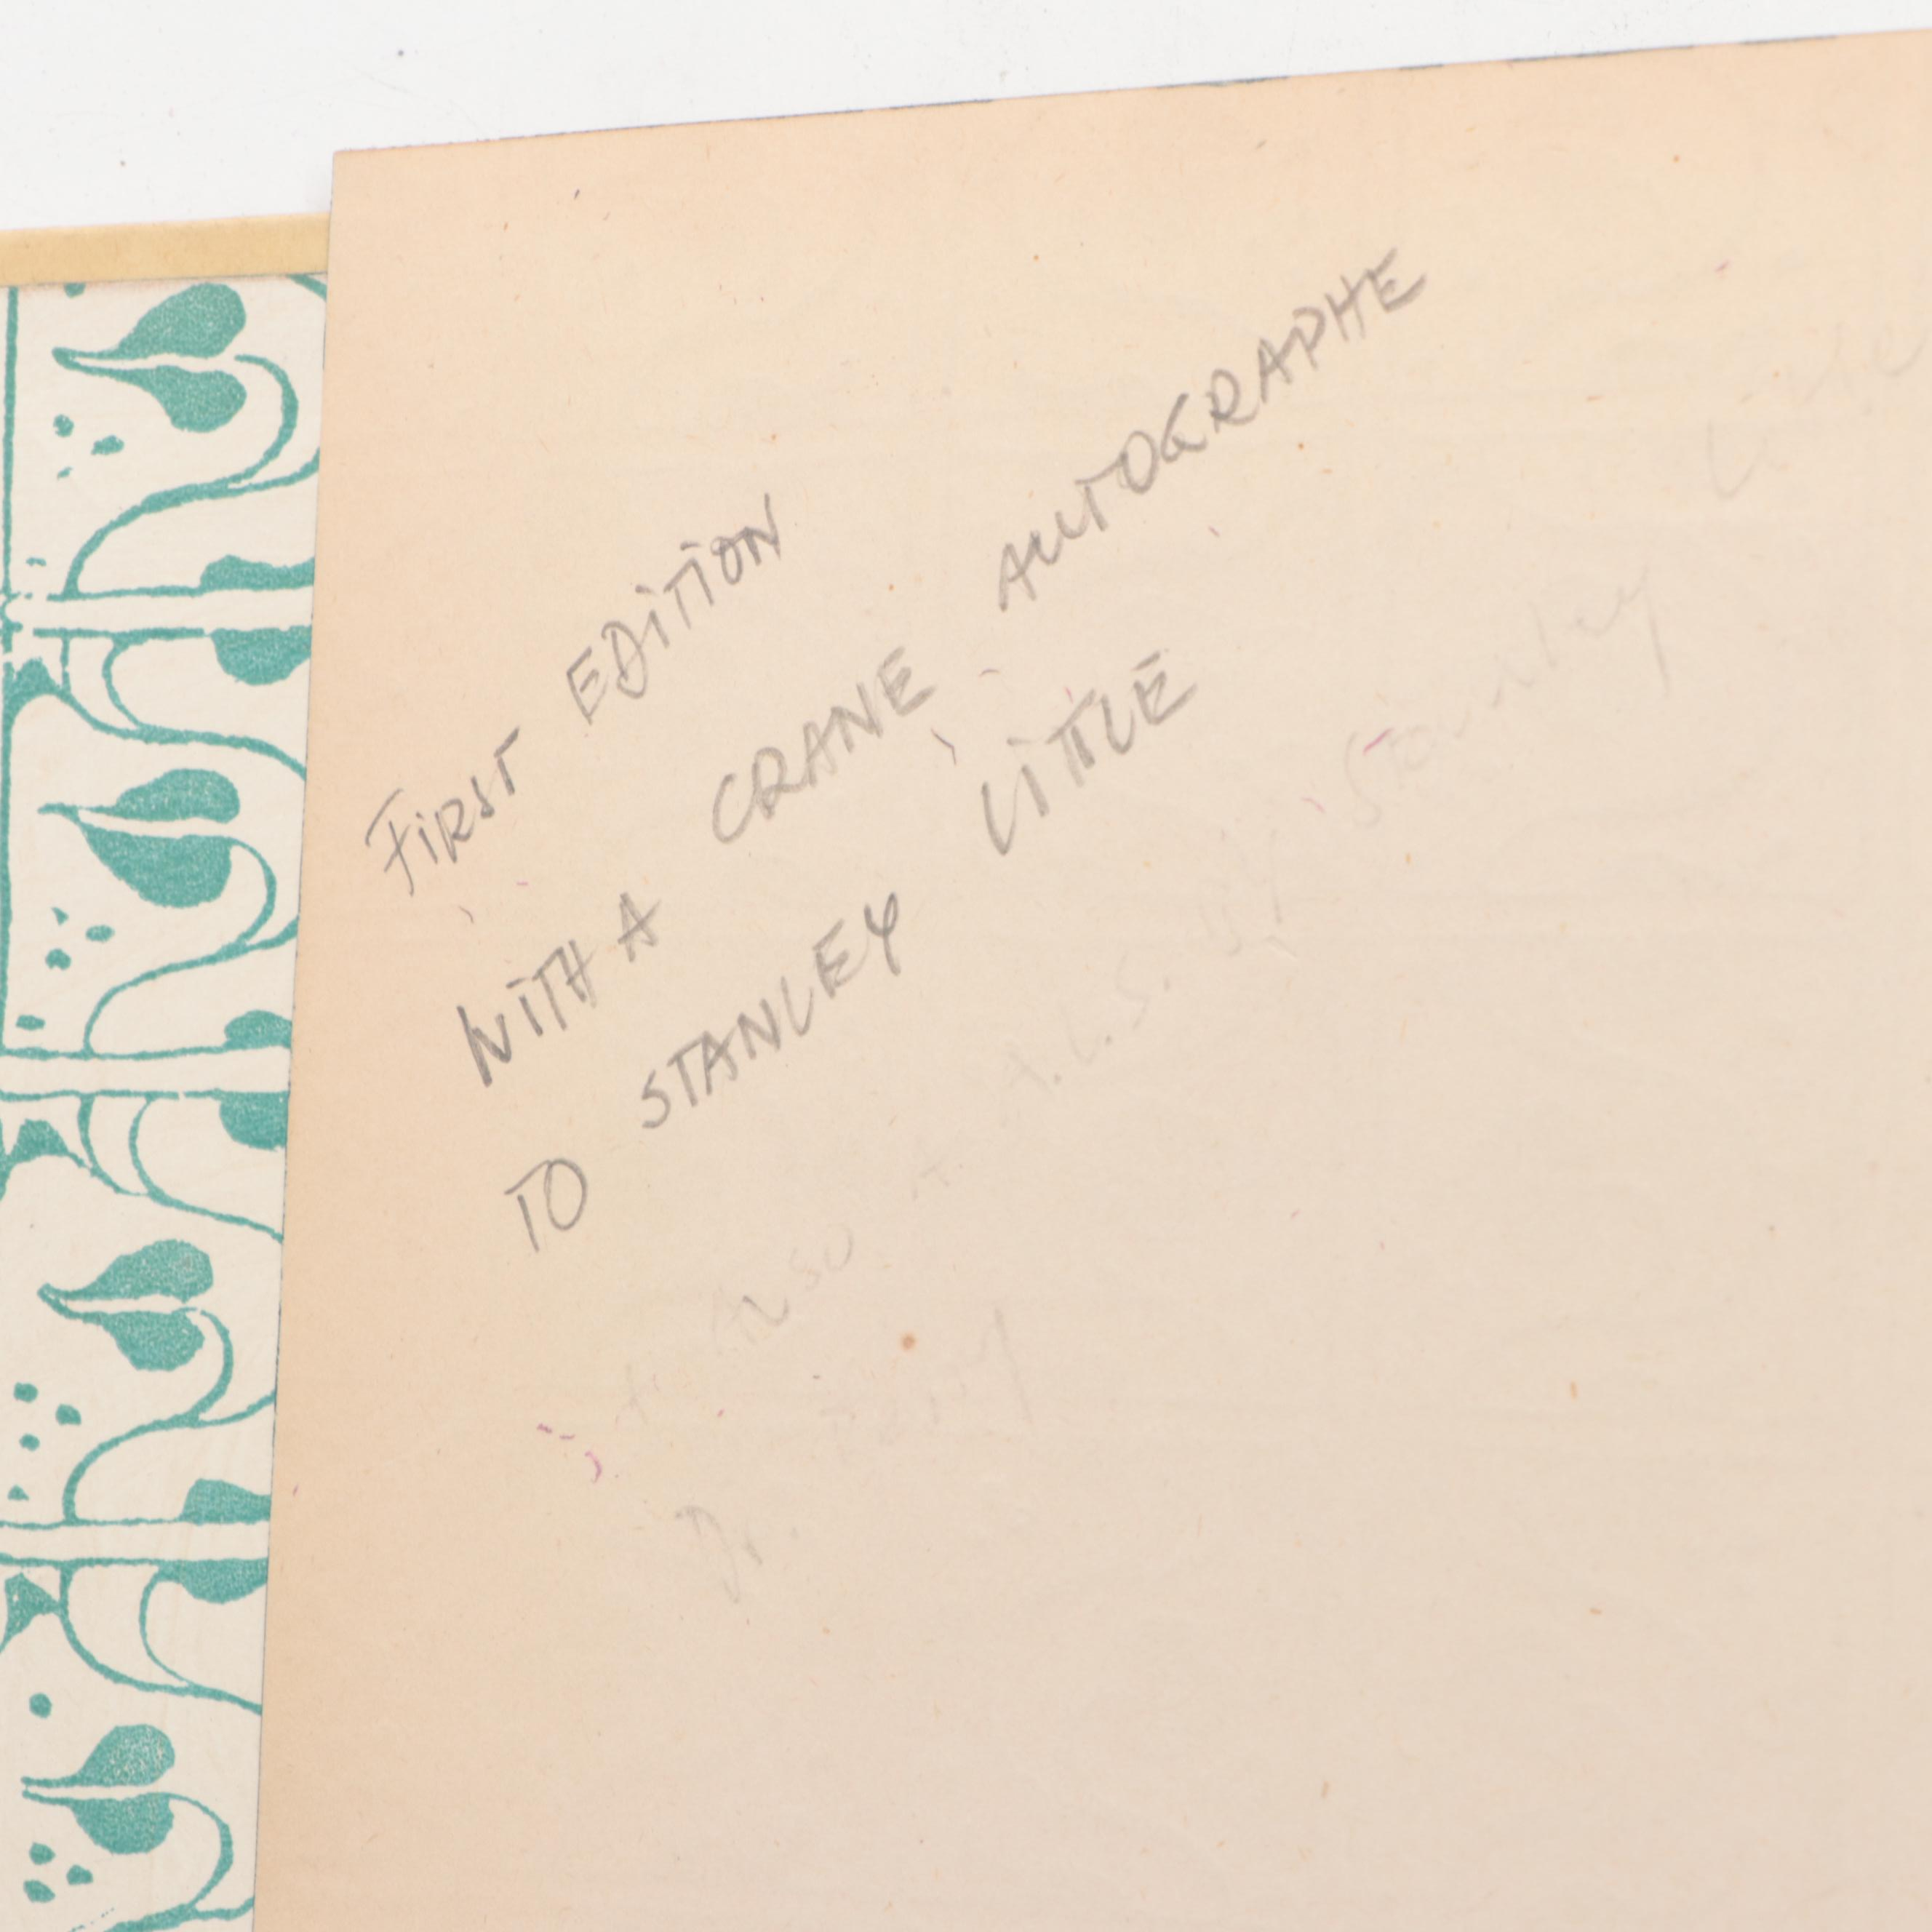 FIRST EDITION
WITH A CRANE AUTOGRAPHE
TO STANLEY LITTLE
Also A A.L.S. by Stanley Little
Dr.